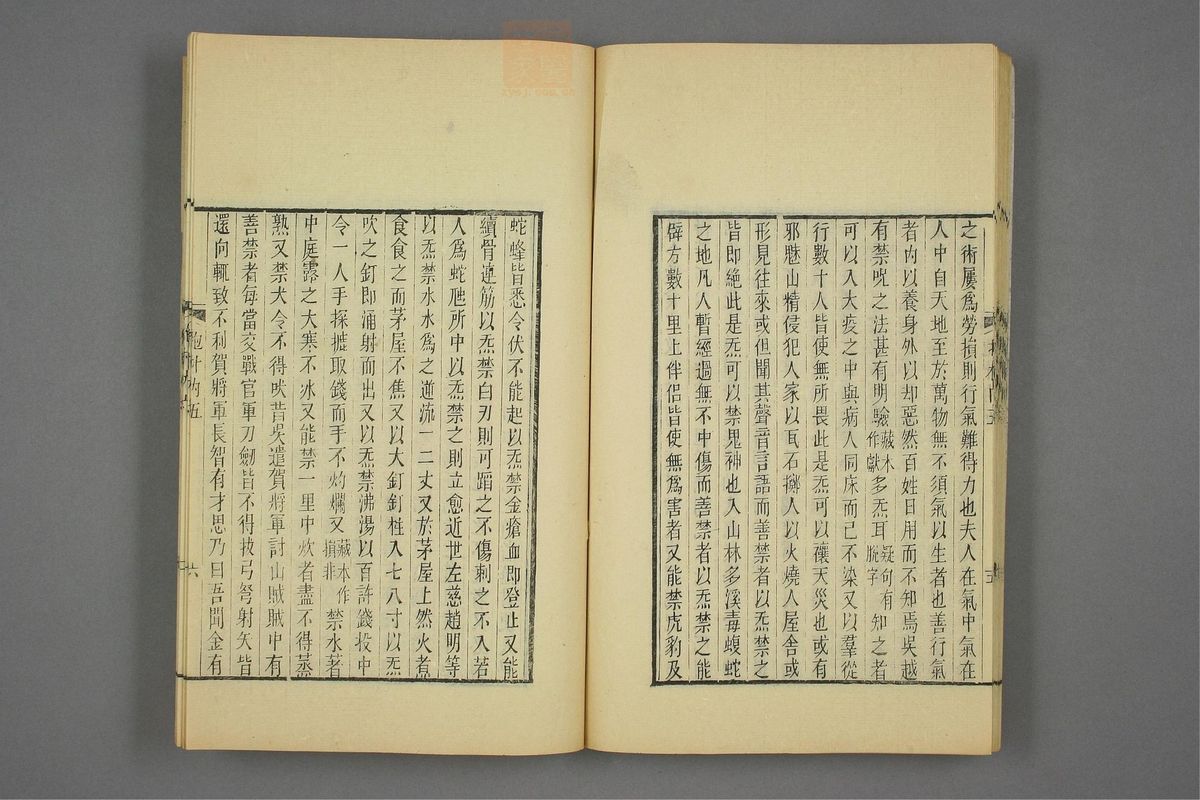 之術屢爲勞損則行氣難得力也夫人在氣中氣在
人中自天地至於萬物無不須氣以生者也善行氣
者内以養身外以却惡然百姓日用而不知焉吳越
有禁呪之法甚有明驗藏本作獻多炁耳疑句有脫字知之者
可以入大疫之中與病人同床而已不染又以羣從
行數十人皆使無所畏此是炁可以禳天災也或有
邪魅山精侵犯人家以瓦石擲人以火燒人屋舍或
形見往來或但聞其聲音言語而善禁者以炁禁之
皆即絶此是炁可以禁鬼神也入山林多溪毒蝮蛇
之地凡人暫經過無不中傷而善禁者以炁禁之能
辟方數十里上伴侶皆使無爲害者又能禁虎豹及
蛇蜂皆悉令伏不能起以炁禁金瘡血即登止又能
續骨連筋以炁禁白刃則可蹈之不傷刺之不入若
人爲蛇虺所中以炁禁之則立愈近世左慈趙明等
以炁禁水水爲之逆流一二丈又於茅屋上然火煮
食食之而茅屋不焦又以大釘釘柱入七八寸以炁
吹之釘即涌射而出又以炁禁沸湯以百許錢投中
令一人手探摝取錢而手不灼爛又藏本作損非禁水著
中庭露之大寒不冰又能禁一里中炊者盡不得蒸
熟又禁犬令不得吠昔吳遣賀將軍討山賊賊中有
善禁者每當交戰官軍刀劒皆不得拔弓弩射矢皆
還向輒致不利賀將軍長智有才思乃曰吾聞金有
抱朴内五
六